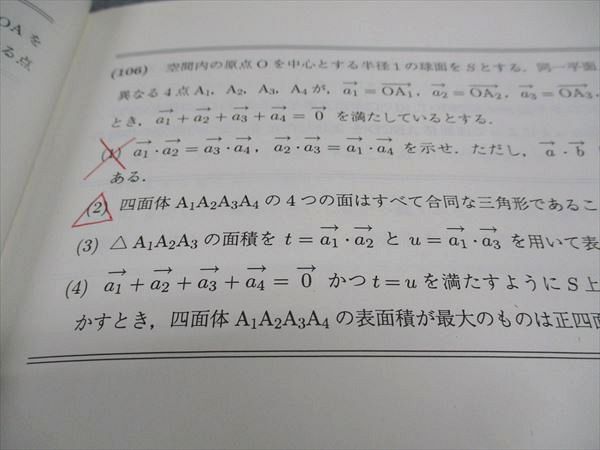 OAを
る点
(106) 空間内の原点Oを中心とする半径1の球面をSとする. 同一平面
異なる4点A₁, A₂, A₃, A₄が, \overrightarrow{a_1} = \overrightarrow{OA_1}, \overrightarrow{a_2} = \overrightarrow{OA_2}, \overrightarrow{a_3} = \overrightarrow{OA_3},
とき, \overrightarrow{a_1} + \overrightarrow{a_2} + \overrightarrow{a_3} + \overrightarrow{a_4} = \overrightarrow{0} を満たしているとする.
(1) \overrightarrow{a_1}・\overrightarrow{a_2} = \overrightarrow{a_3}・\overrightarrow{a_4}, \overrightarrow{a_2}・\overrightarrow{a_3} = \overrightarrow{a_1}・\overrightarrow{a_4} を示せ. ただし, \overrightarrow{a}・\overrightarrow{b}
ある.
(2) 四面体A₁A₂A₃A₄の4つの面はすべて合同な三角形であるこ
(3) △A₁A₂A₃の面積を t = \overrightarrow{a_1}・\overrightarrow{a_2} と u = \overrightarrow{a_1}・\overrightarrow{a_3} を用いて表
(4) \overrightarrow{a_1} + \overrightarrow{a_2} + \overrightarrow{a_3} + \overrightarrow{a_4} = \overrightarrow{0} かつ t = u を満たすようにS上
かすとき, 四面体A₁A₂A₃A₄の表面積が最大のものは正四